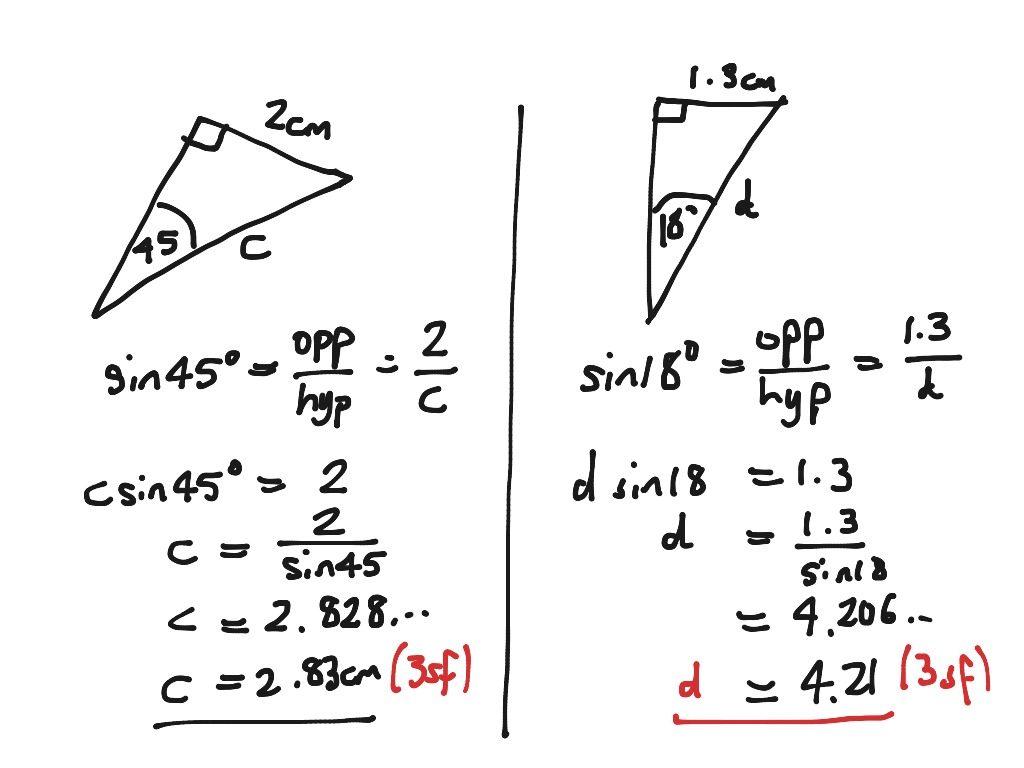 2cm
45
c
sin45° = opp/hyp = 2/c
csin45° = 2
c = 2/sin45
c = 2.828...
c = 2.83cm (3sf)
1.3cm
18°
d
sin18° = opp/hyp = 1.3/d
d sin18 = 1.3
d = 1.3/sin18
= 4.206...
d = 4.21 (3sf)